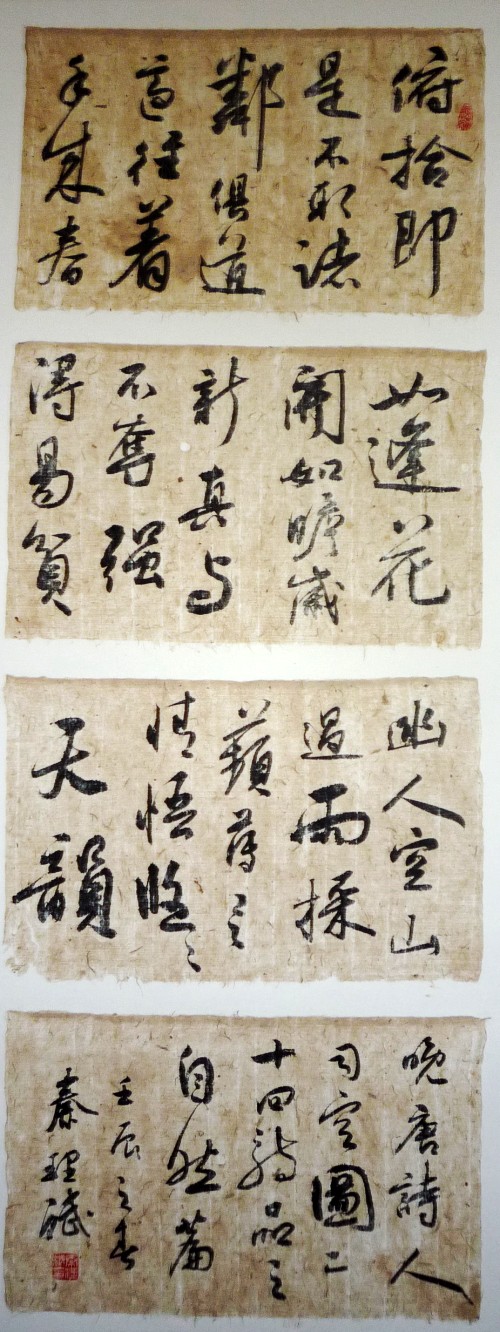 俯拾即
是不取諸
鄰俱道
適往着
手成春
如逢花
開如瞻歲
新真与
不奪强
得易貧
幽人空山
過雨採
蘋薄言
情悟悠々
天韻
晚唐詩人
司空圖二
十四詩品之
自然篇
壬辰之春
秦理